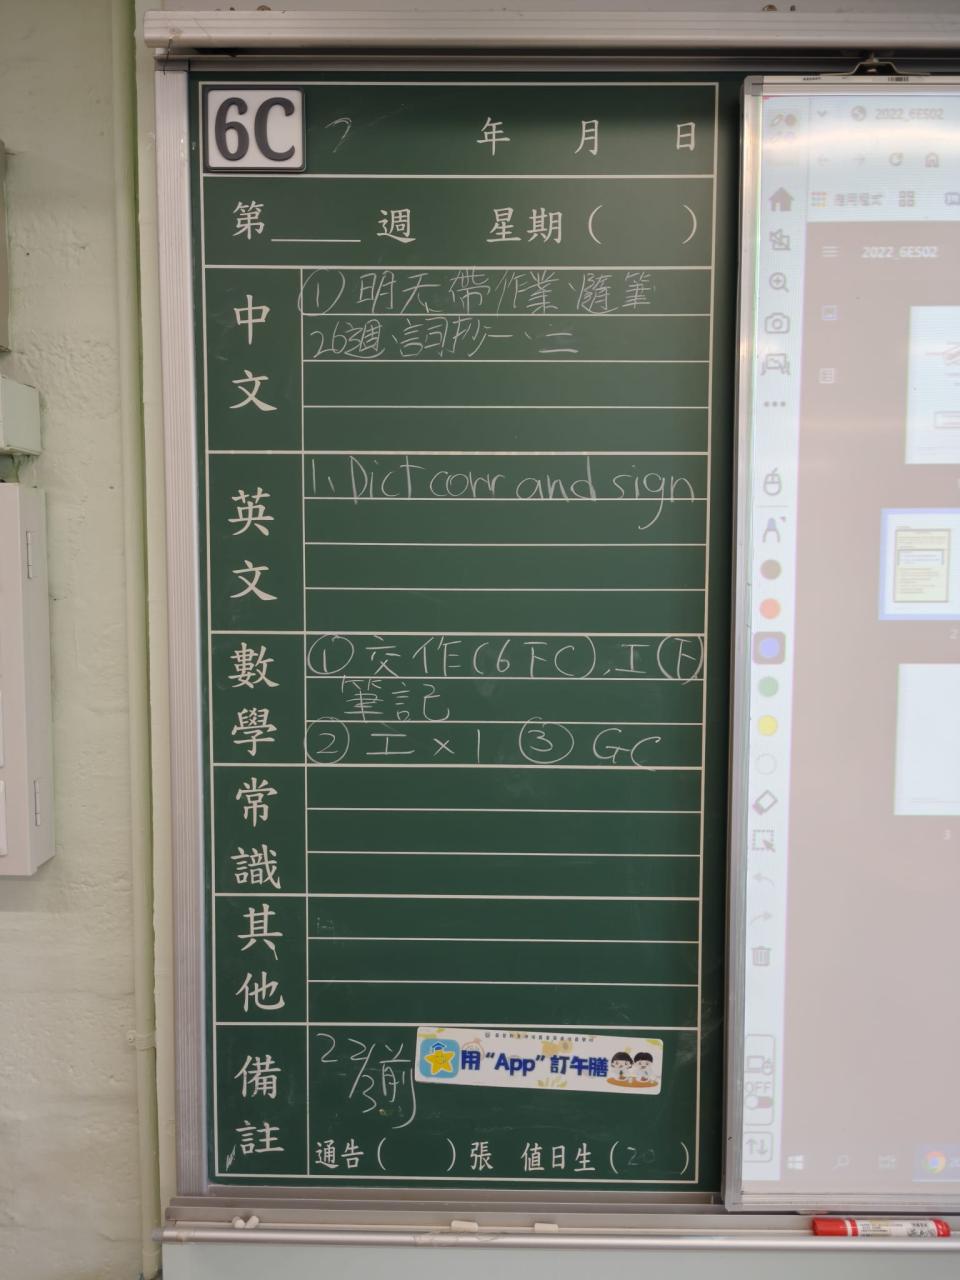 6C 年 月 日
第 週 星期( )
中文
① 明天帶作業、隨筆
26週、詞抄一、二
英文
1. Dict corr and sign
數學
① 交作(6下C), 工(下)
筆記
② 工 x 1 ③ GC
常識
其他
備註
22/3前
用"App"訂午膳
通告( )張 值日生(20)
2022_6ES02
應用程式
2022_6ES02
2
3
OFF